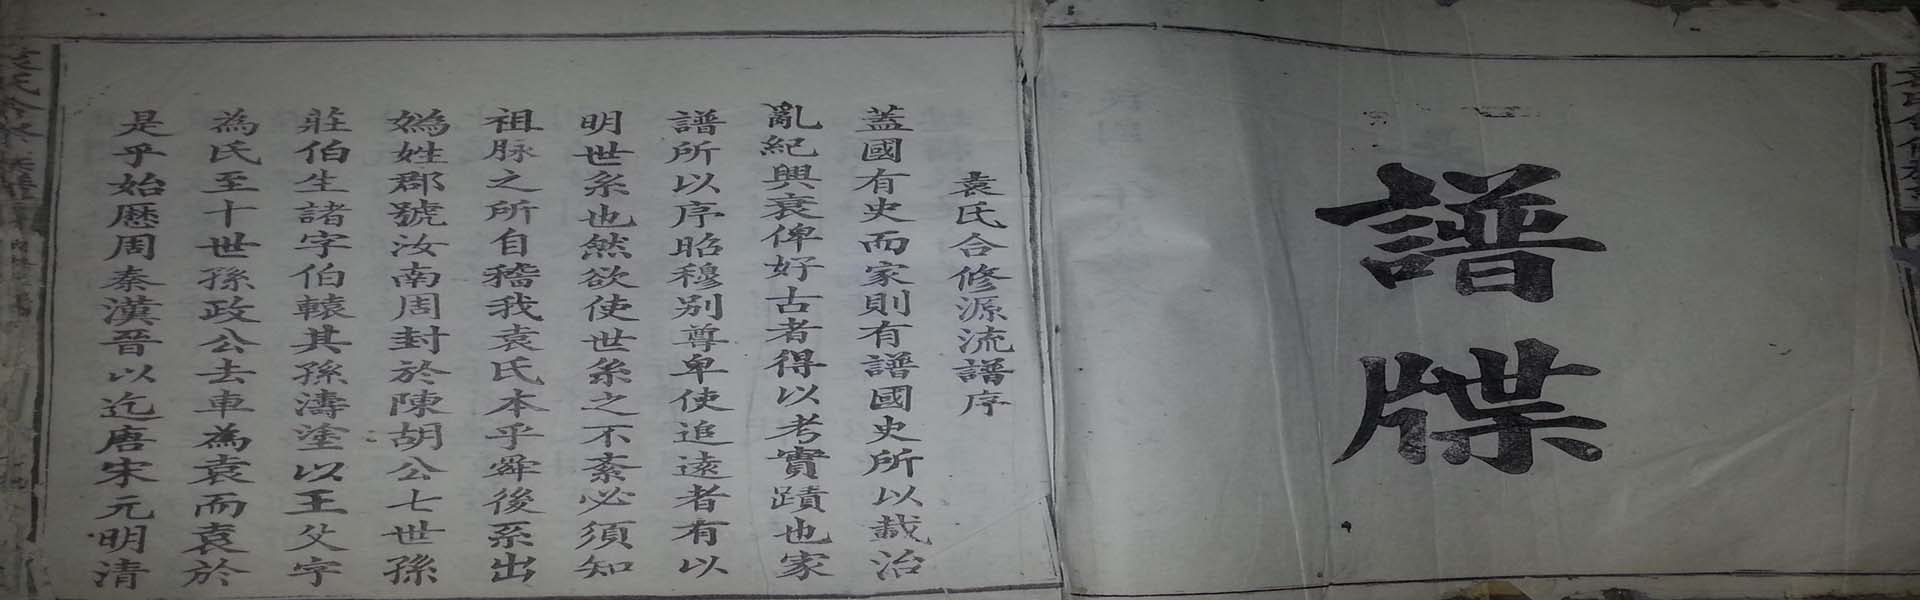 譜牒
袁氏合修源流譜序
蓋國有史而家則有譜國史所以載治
亂紀興衰俾好古者得以考實蹟也家
譜所以序昭穆别尊卑使追遠者有以
明世系也然欲使世系之不紊必須知
祖脉之所自稽我袁氏本乎舜後系出
媯姓郡號汝南周封於陳胡公七世孫
莊伯生諸字伯轅其孫濤塗以王父字
為氏至十世孫政公去車為袁而袁於
是乎始歷周秦漢晉以迄唐宋元明清